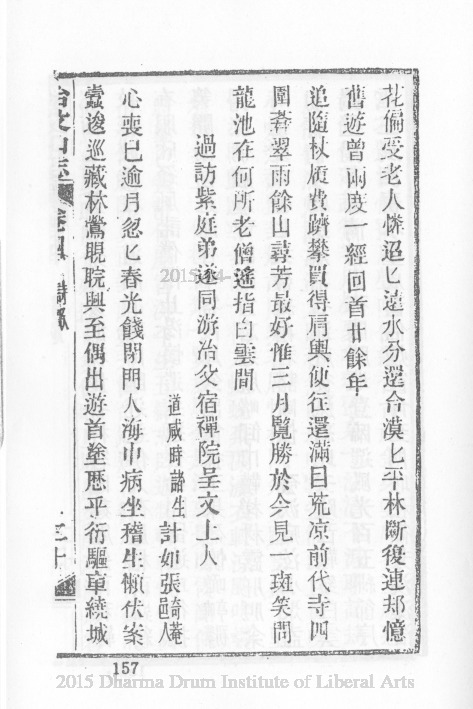 花偏受老人憐迢匕遠水分還合漠匕平林斷復連却憶
舊遊曾兩度一經回首廿餘年
追隨杖履費躋攀買得肩輿便往還滿目荒凉前代寺四
圍蒼翠雨餘山尋芳最好惟三月覽勝於今見一斑笑問
龍池在何所老僧遙指白雲間
過訪紫庭弟遂同游治父宿禪院呈文上人
道咸時諸生 計如張 邑人 奇菴
心喪已逾月忽匕春光餞閉門人海中病坐稽生懶伏案
蠹逡巡藏林鶯睍睆興至偶出遊首塗歷平衍驅車繞城
治父山志 卷四 詩 二十
2015
157
2015 Dharma Drum Institute of Liberal Arts